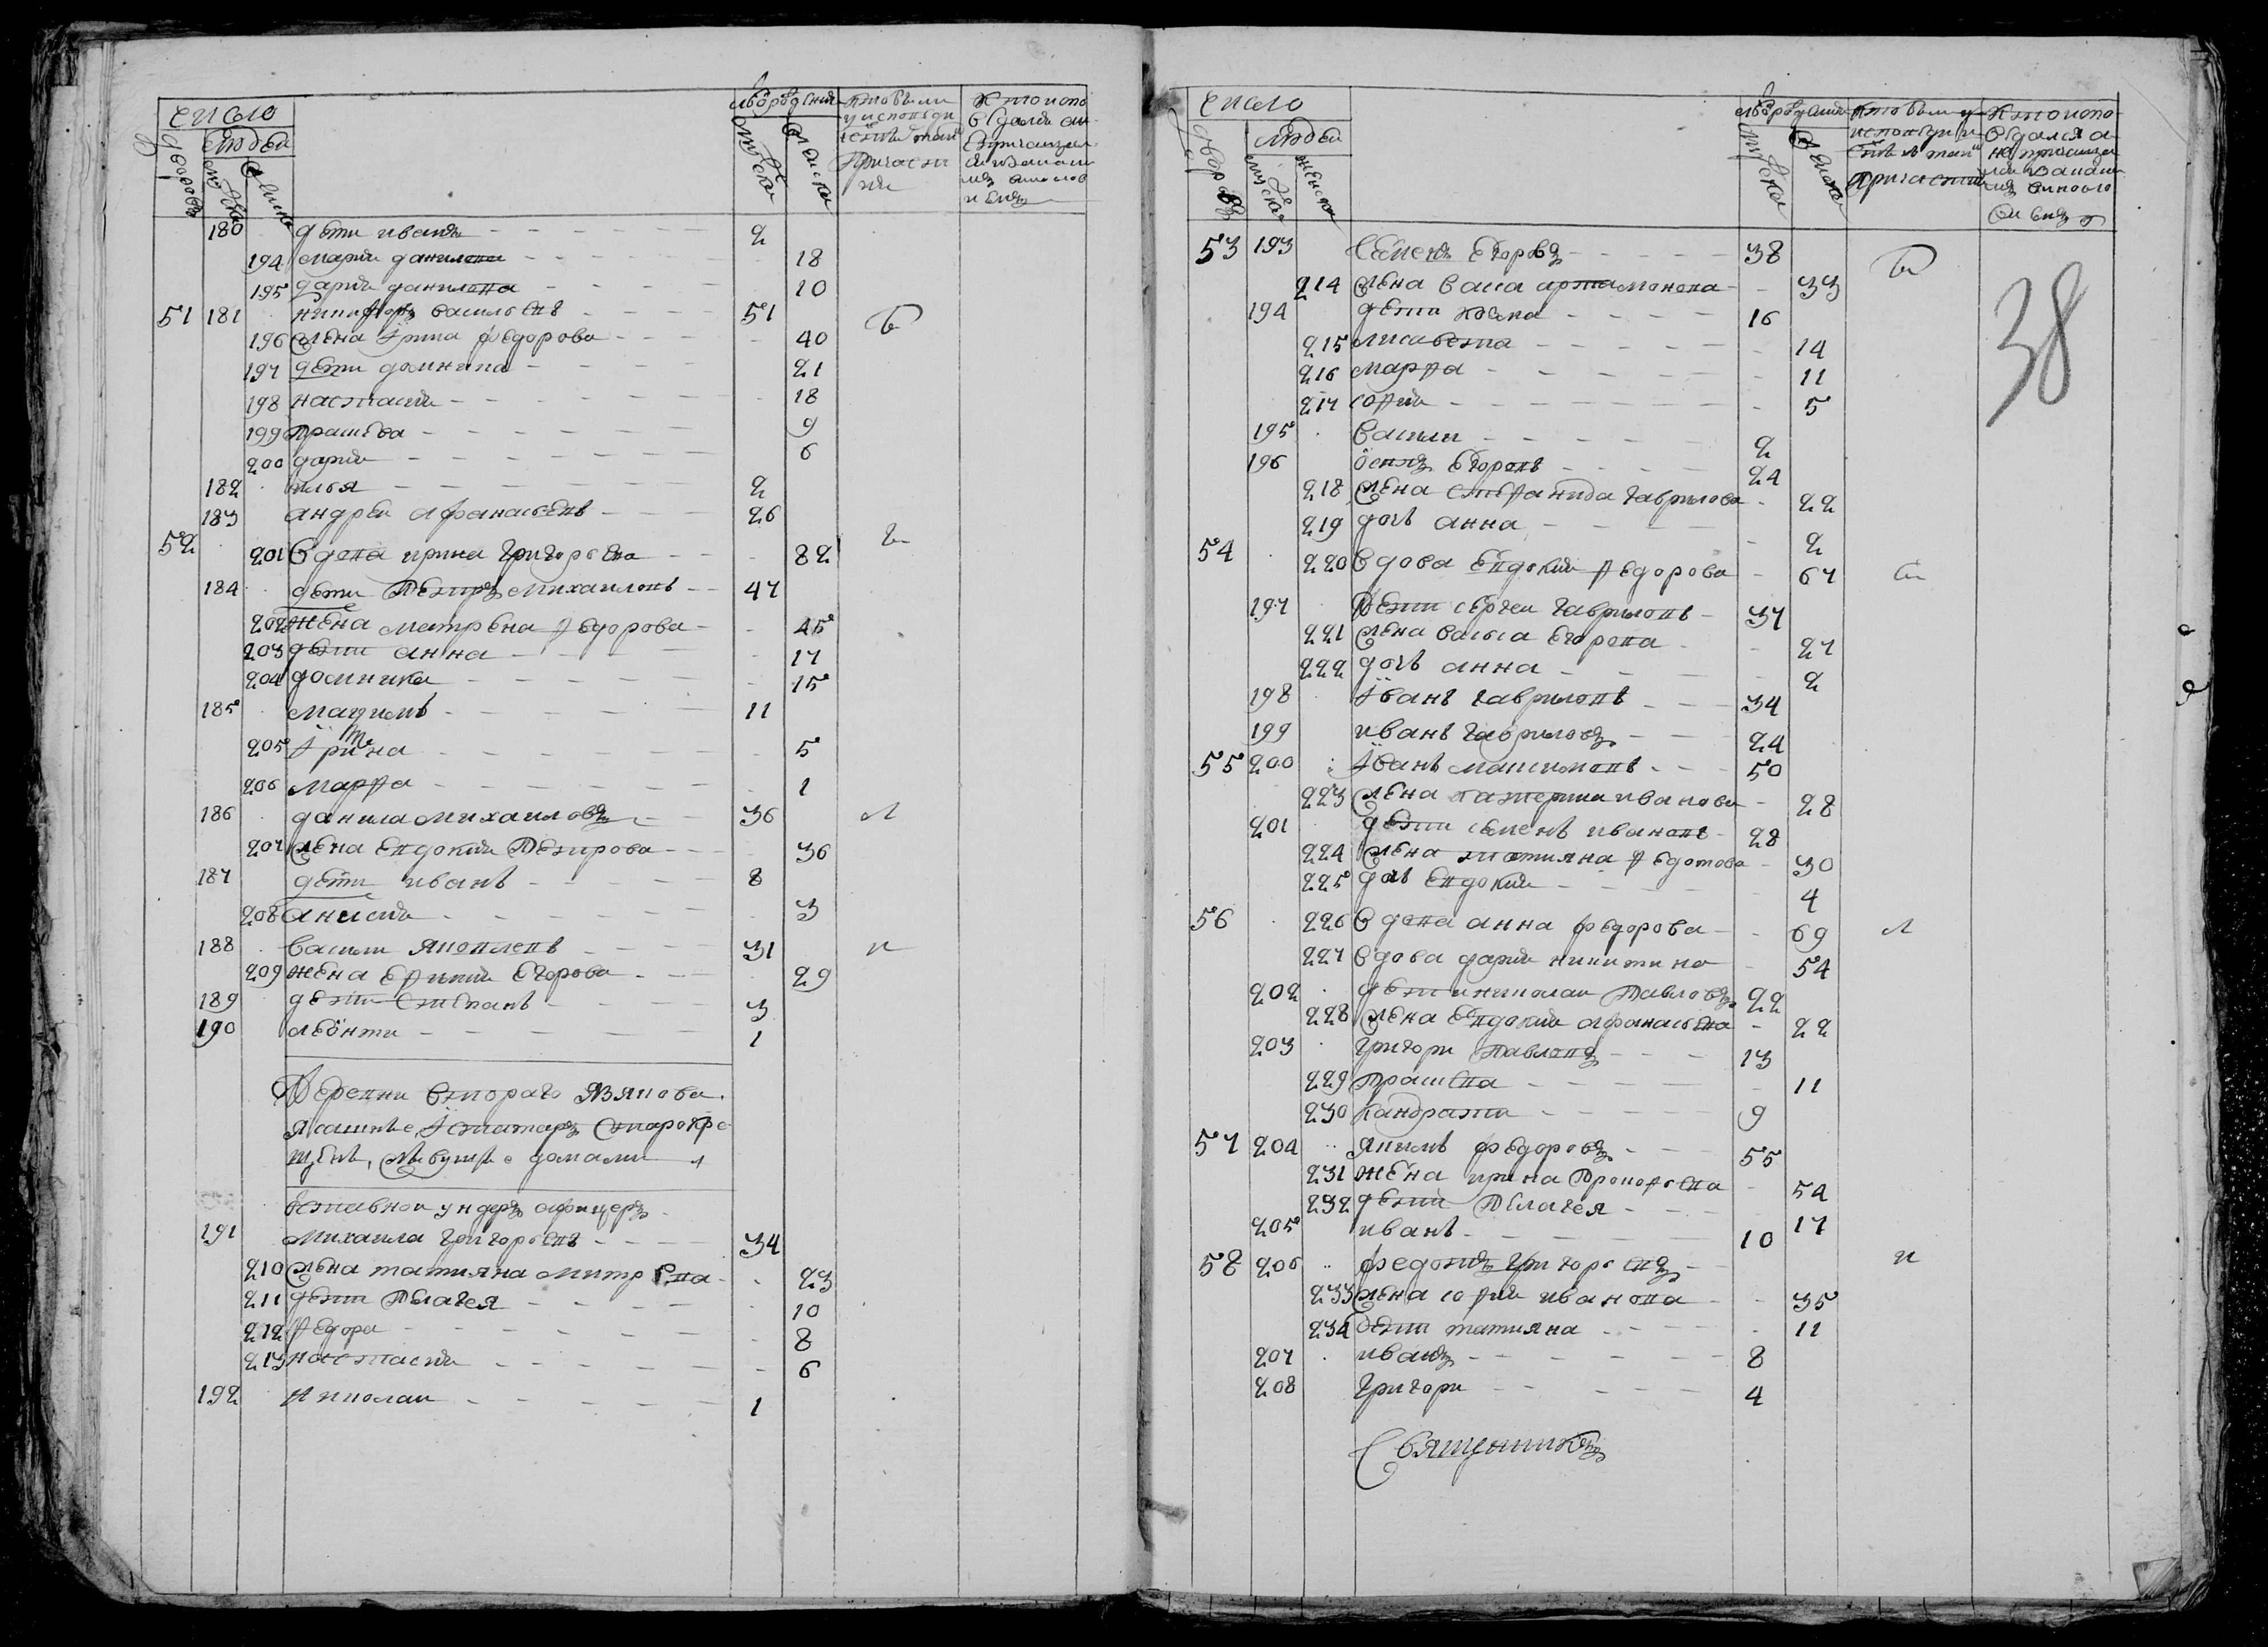 Число
Людей
дворовъ
мужеска
женска
лѣтъ отъ рожденія
мужеска
женска
Кто были
у исповѣди
и святыхъ таинъ
причастія
180 дѣти иванъ 2
194 марія данилова 18
195 дарія данилова 10
51 181 никифоръ васильевъ 51
196 жена Ірина федорова 40
197 дѣти домника 21
198 настасия 18
199 прасковя 9
200 дария 6
182 илья 2
183 андреи афанасьевъ 26
52 201 вдова ирина григорьева 82
184 дѣти Петръ михаиловъ 47
202 жена матрена федорова 45
203 дѣти анна 17
204 домника 15
185 маѯимъ 11
205 Ірина 5
206 марфа 1
186 данила михаиловъ 36 л
207 жена евдокия Петрова 36
187 дѣти иванъ 8
208 анисия 3
188 василии яковлевъ 31 и
209 жена ефимия егорова 29
189 дѣти степанъ 3
190 леонти 1
Деревни втораго Язякова
ясашные, Iс татаръ старокре
щены, живущие домами
Отставнои ундеръ афицеръ
191 Михаила григорьевъ 34
210 жена татияна митревна 23
211 дѣти Пелагея 10
212 федора 8
213 настасия 6
192 николаи 1
Число
Людей
дворовъ
мужеска
женска
лѣтъ отъ рожденія
мужеска
женска
38
53 193 Семенъ егоровъ 38
214 жена васа артамонова 33
194 дѣти козма 16
215 лисавета 14
216 марфа 11
217 софия 5
195 василии 2
196 осипъ егоровъ 24
218 жена стефанида гаврилова 22
219 дочь анна 2
54 220 вдова евдокия федорова 67
197 дѣти сергеи гавриловъ 37
221 жена васса егорова 27
222 дочь анна 2
198 Iванъ гавриловъ 34
199 иванъ гавриловъ 24
55 200 Iванъ маѯимовъ 50
223 жена катерина иванова 28
201 дѣти семенъ ивановъ 28
224 жена татияна федотова 30
225 дочь евдокия 4
56 226 вдова анна федорова 69 л
227 вдова дария никитина 54
202 дѣти николаи Павловъ 22
228 жена евдокия афанасьева 22
203 григори павловъ 13
229 Прасковя 11
230 Кандрати 9
57 204 якимъ федоровъ 55
231 жена ирина Прокофьева 54
232 дѣти Пелагея 17
205 иванъ 10
58 206 федотъ григорьевъ и
233 жена софия иванова 35
234 дѣти татияна 11
207 иванъ 8
208 григори 4
Священникъ